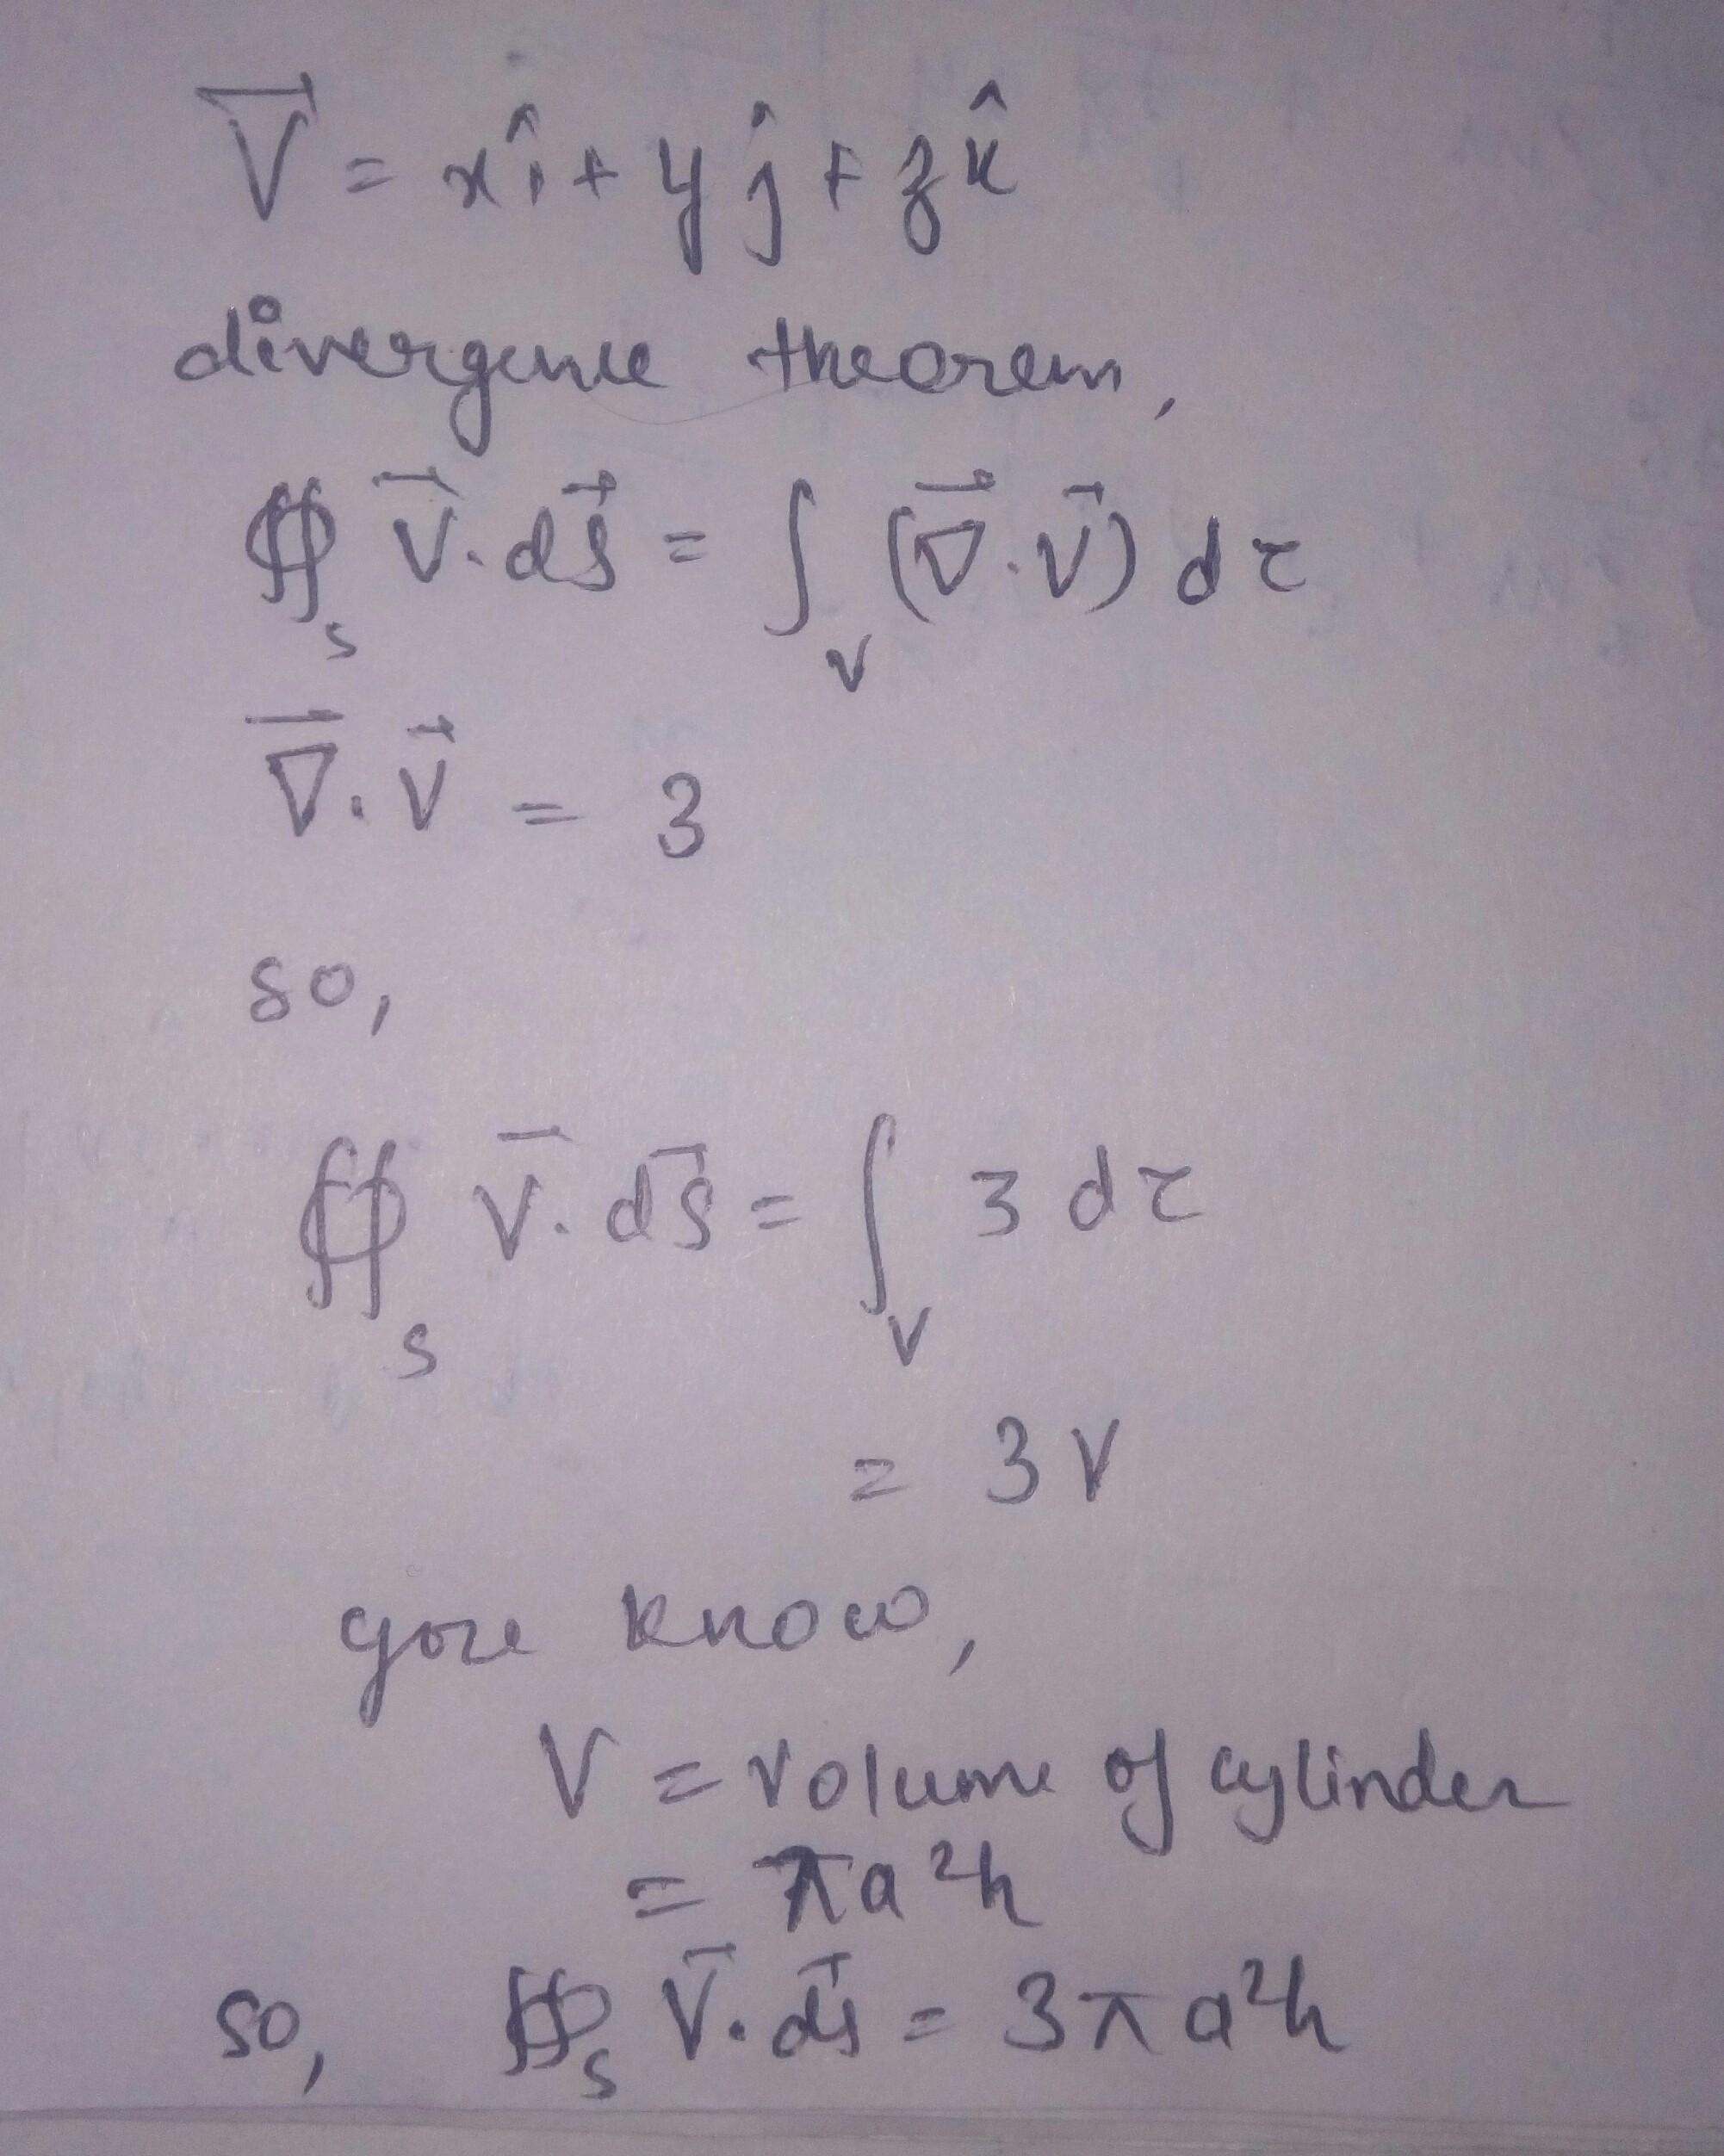 V⃗ = xî + yĵ + zk̂
divergence theorem,
∯_S V⃗.dS⃗ = ∫_V (∇⃗.V⃗) dτ
∇⃗.V⃗ = 3
so,
∯_S V⃗.dS⃗ = ∫_V 3 dτ
= 3V
know,
V = volume of cylinder
= πa²h
so, ∯_S V⃗.dS⃗ = 3πa²h